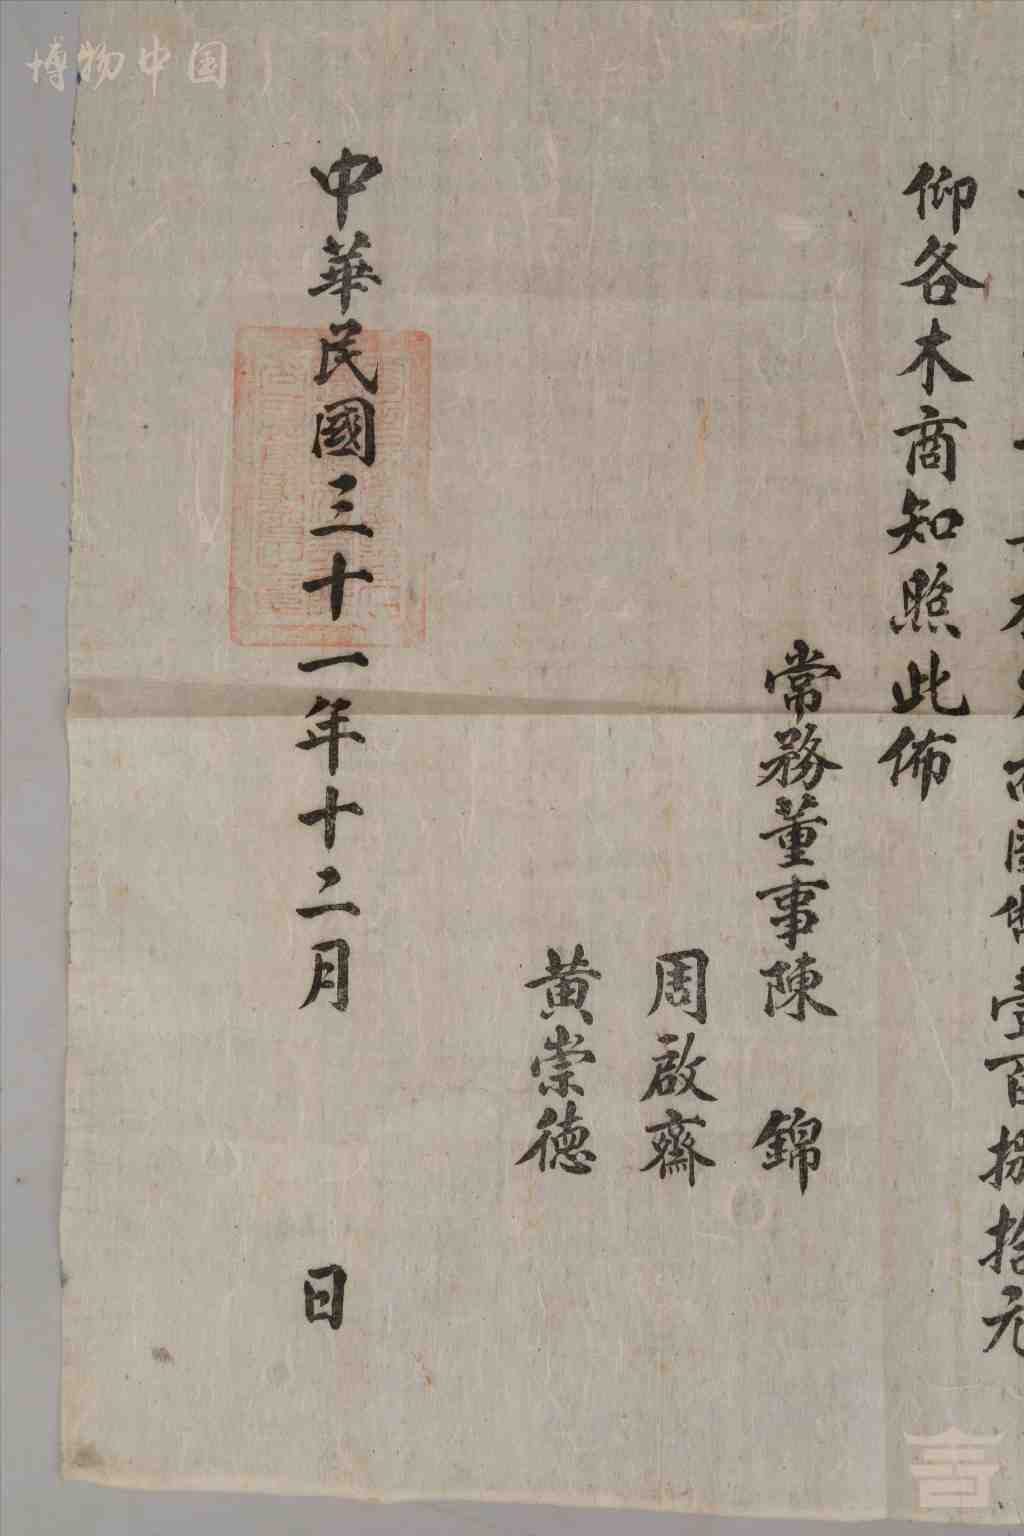 壹百捌拾元
仰各木商知照此佈
常務董事陳 錦
周啟齋
黄崇德
中華民國三十一年十二月 日
博物中国